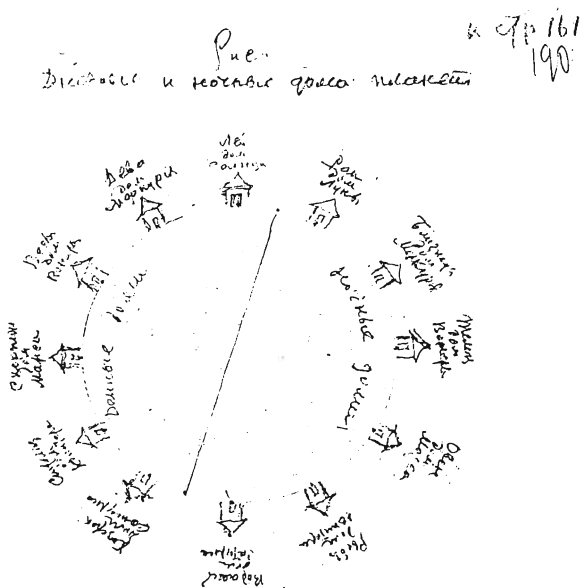 к стр 161
190
Рис.
Дневные и ночные дома планет
Лев
дом
Солнца
Рак
дом
Луны
Близнецы
дом
Меркурия
Телец
дом
Венеры
Овен
дом
Марса
Рыбы
дом
Юпитера
Водолей
дом
Сатурна
Козерог
дом
Сатурна
Стрелец
Юпитера
Скорпион
дом
Марса
Весы
дом
Венеры
Дева
дом
Меркурия
Дневные дома
Ночные дома